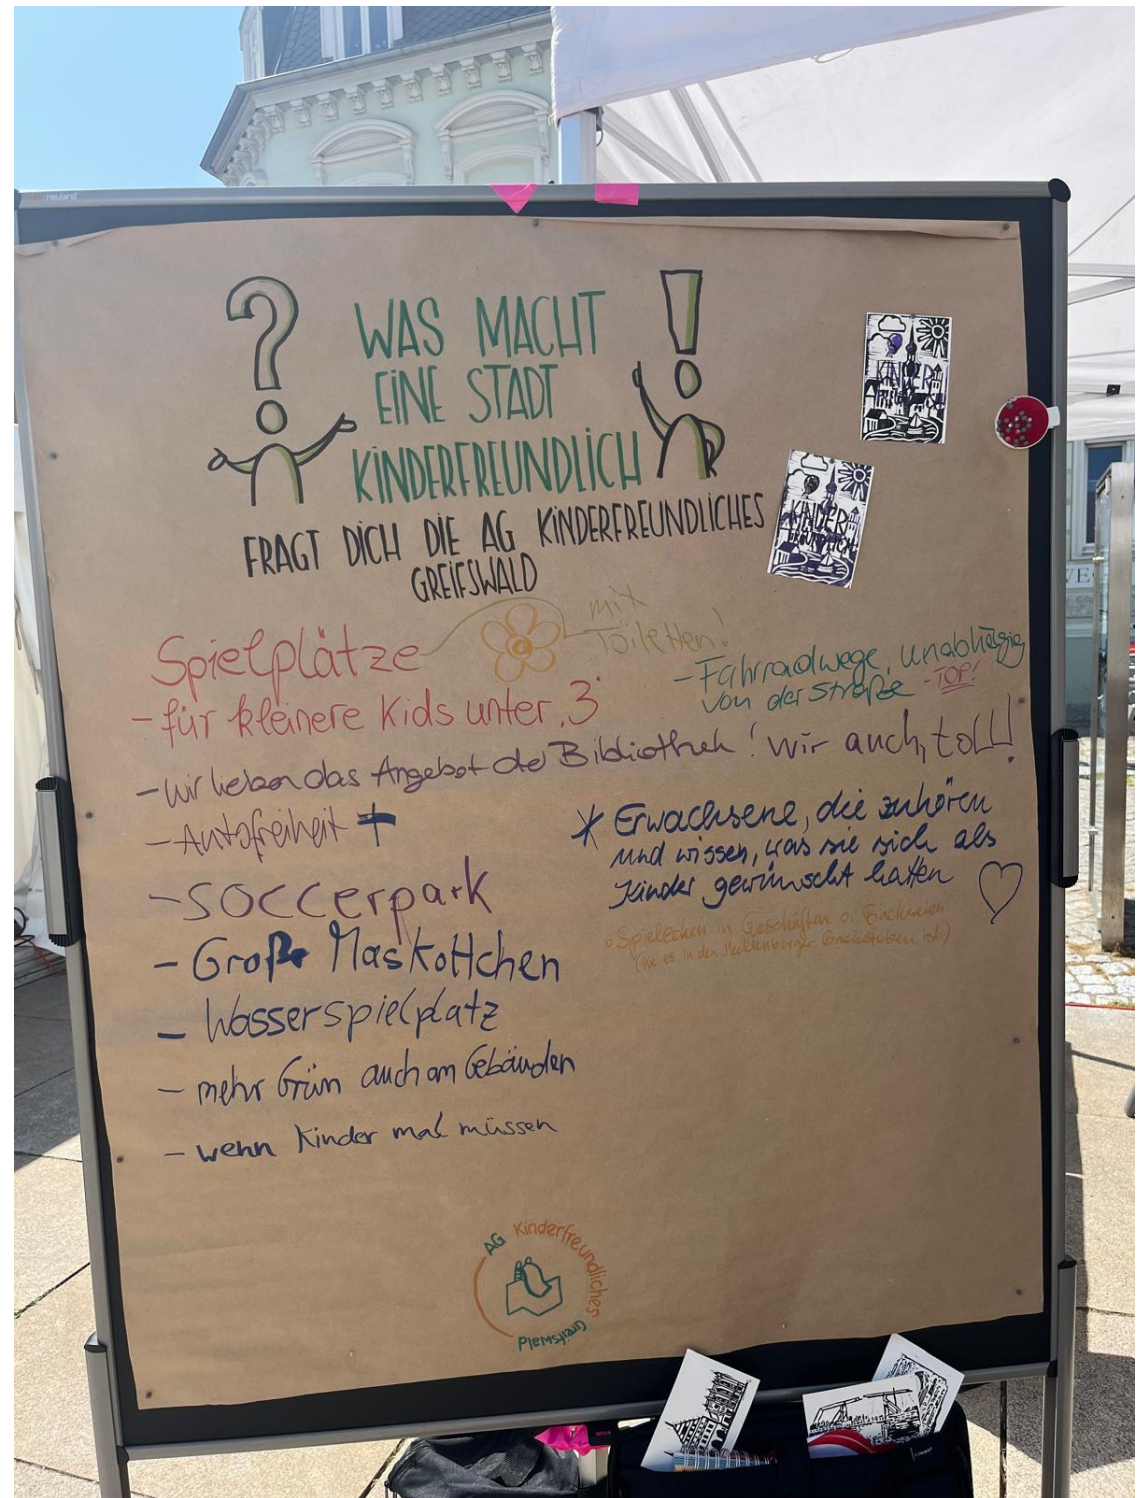 neuland
WAS MACHT
EINE STADT
KINDERFREUNDLICH
FRAGT DICH DIE AG KINDERFREUNDLICHES
GREIFSWALD
KINDER
KINDER
Spielplätze
mit
Toiletten!
- für kleinere Kids unter 3
- Fahrradwege, unabhägig
von der Straße - TOP!
- wir lieben das Angebot der Bibliothek! wir auch, toll!
- Autofreiheit +
- soccerpark
- Große Maskottchen
- Wasserspielplatz
- mehr Grün auch am Gebäuden
- wenn Kinder mal müssen
* Erwachsene, die zuhören
und wissen, was sie sich als
Kinder gewünscht hatten
Spielecken in Geschäften o. Bäckereien
(wie es in den Mecklenburger Backstuben ist)
AG Kinderfreundliches
Greifswald